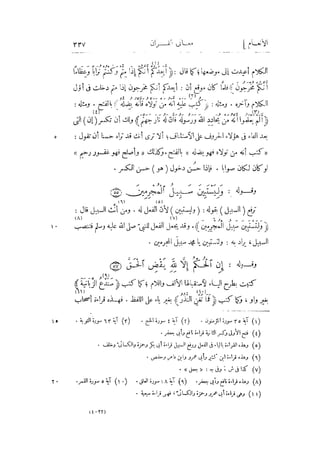 [الأنعام] معانى القـــرآن ٣٣٧
الكلام أعيدت إلى موضعها؛ كما قال: ﴿أَيَعِدُكُمْ أَنَّكُمْ إِذَا مِتُّمْ وَكُنْتُمْ تُرَابًا وَعِظَامًا
أَنَّكُمْ مُخْرَجُونَ﴾ فلما كان موقع أن: أيعدكم أنكم مخرجون إذا متم دخلت فى أوّل
الكلام وآخره. ومثله: ﴿كُتِبَ عَلَيْهِ أَنَّهُ مَنْ تَوَلَّاهُ فَأَنَّهُ يُضِلُّهُ﴾ بالفتح. ومثله:
﴿أَلَمْ يَعْلَمُوا أَنَّهُ مَنْ يُحَادِدِ اللَّهَ وَرَسُولَهُ فَأَنَّ لَهُ نَارَ جَهَنَّمَ﴾ ولك أن تكسر (إن) التى
بعد الفاء فى هؤلاء الحروف على الاستئناف؛ ألا ترى أنك قد تراه حسنا أن تقول: ٥
«كتب أنه من تولاه فهو يضله» بالفتح. وكذلك «وأصلح فهو غفور رحيم»
لو كان لكان صوابا. فإذا حسن دخول (هو) حسن الكسر.
وقـــوله: وَلِيَسْتَبِينَ سَبِيلُ الْمُجْرِمِينَ ٥٥
ترفع (السبيل) بقوله: (وليستبين) لأن الفعل له. ومن أنّث السبيل قال:
﴿وَلِتَسْتَبِينَ سَبِيلُ الْمُجْرِمِينَ﴾. وقد يجعل الفعل للنبىّ صلى الله عليه وسلم فتنصب ١٠
السبيل، يراد به: ولتستبين يا محمد سبيلَ المجرمين.
وقـــوله: إِنِ الْحُكْمُ إِلَّا لِلَّهِ يَقْضِ الْحَقَّ ٥٧
كتبت بطرح اليـاء لاستقبالها الألف واللام؛ كما كتب ﴿سَنَدْعُ الزَّبَانِيَةَ﴾
بغير واو، وكما كتب ﴿فَمَا تُغْنِ النُّذُرُ﴾ بغير ياء على اللفظ. فهـذه قراءة أصحاب
(١) آية ٣٥ سورة المؤمنون. (٢) آية ٤ سورة الحج. (٣) آية ٦٣ سورة التوبة. ١٥
(٤) فتح الأولى وكسر الثانية قراءة نافع وأبى جعفر.
(٥) وهذه القراءة بالياء فى الفعل ورفع السبيل قراءة أبى بكر وحمزة والكسائىّ وخلف.
(٦) وهذه قراءة ابن كثير وأبى عمرو وابن عامر وحفص.
(٧) كذا فى ش. وفى ج: «يجعل».
(٨) وهذه قراءة نافع وأبى جعفر. (٩) آية ١٨ سورة العلق. (١٠) آية ٥ سورة القمر. ٢٠
(١١) وهى قراءة أبى عمرو وحمزة والكسائىّ، فهى قراءة سبعية.
(٢٢-٤)